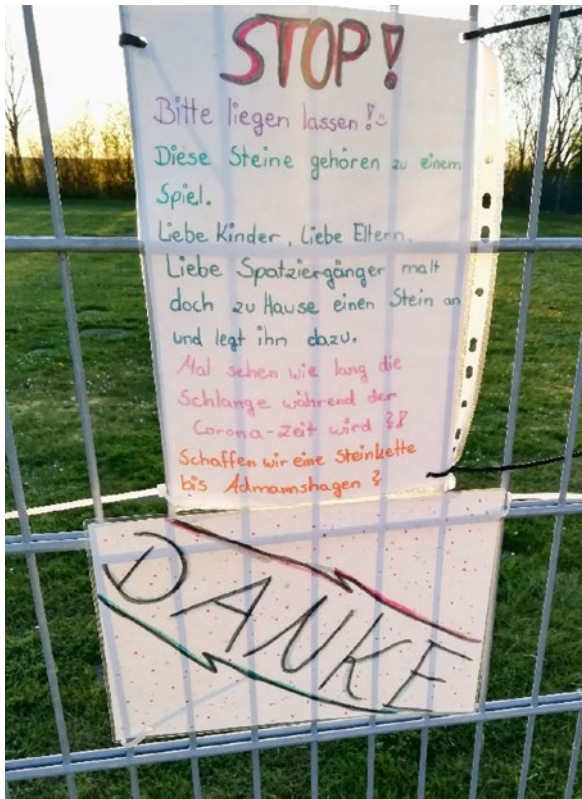 STOP!
Bitte liegen lassen!
Diese Steine gehören zu einem
Spiel.
Liebe Kinder, Liebe Eltern,
Liebe Spatziergänger malt
doch zu Hause einen Stein an
und legt ihn dazu.
Mal sehen wie lang die
Schlange während der
Corona-Zeit wird ?!
Schaffen wir eine Steinkette
bis Admannshagen ?
DANKE